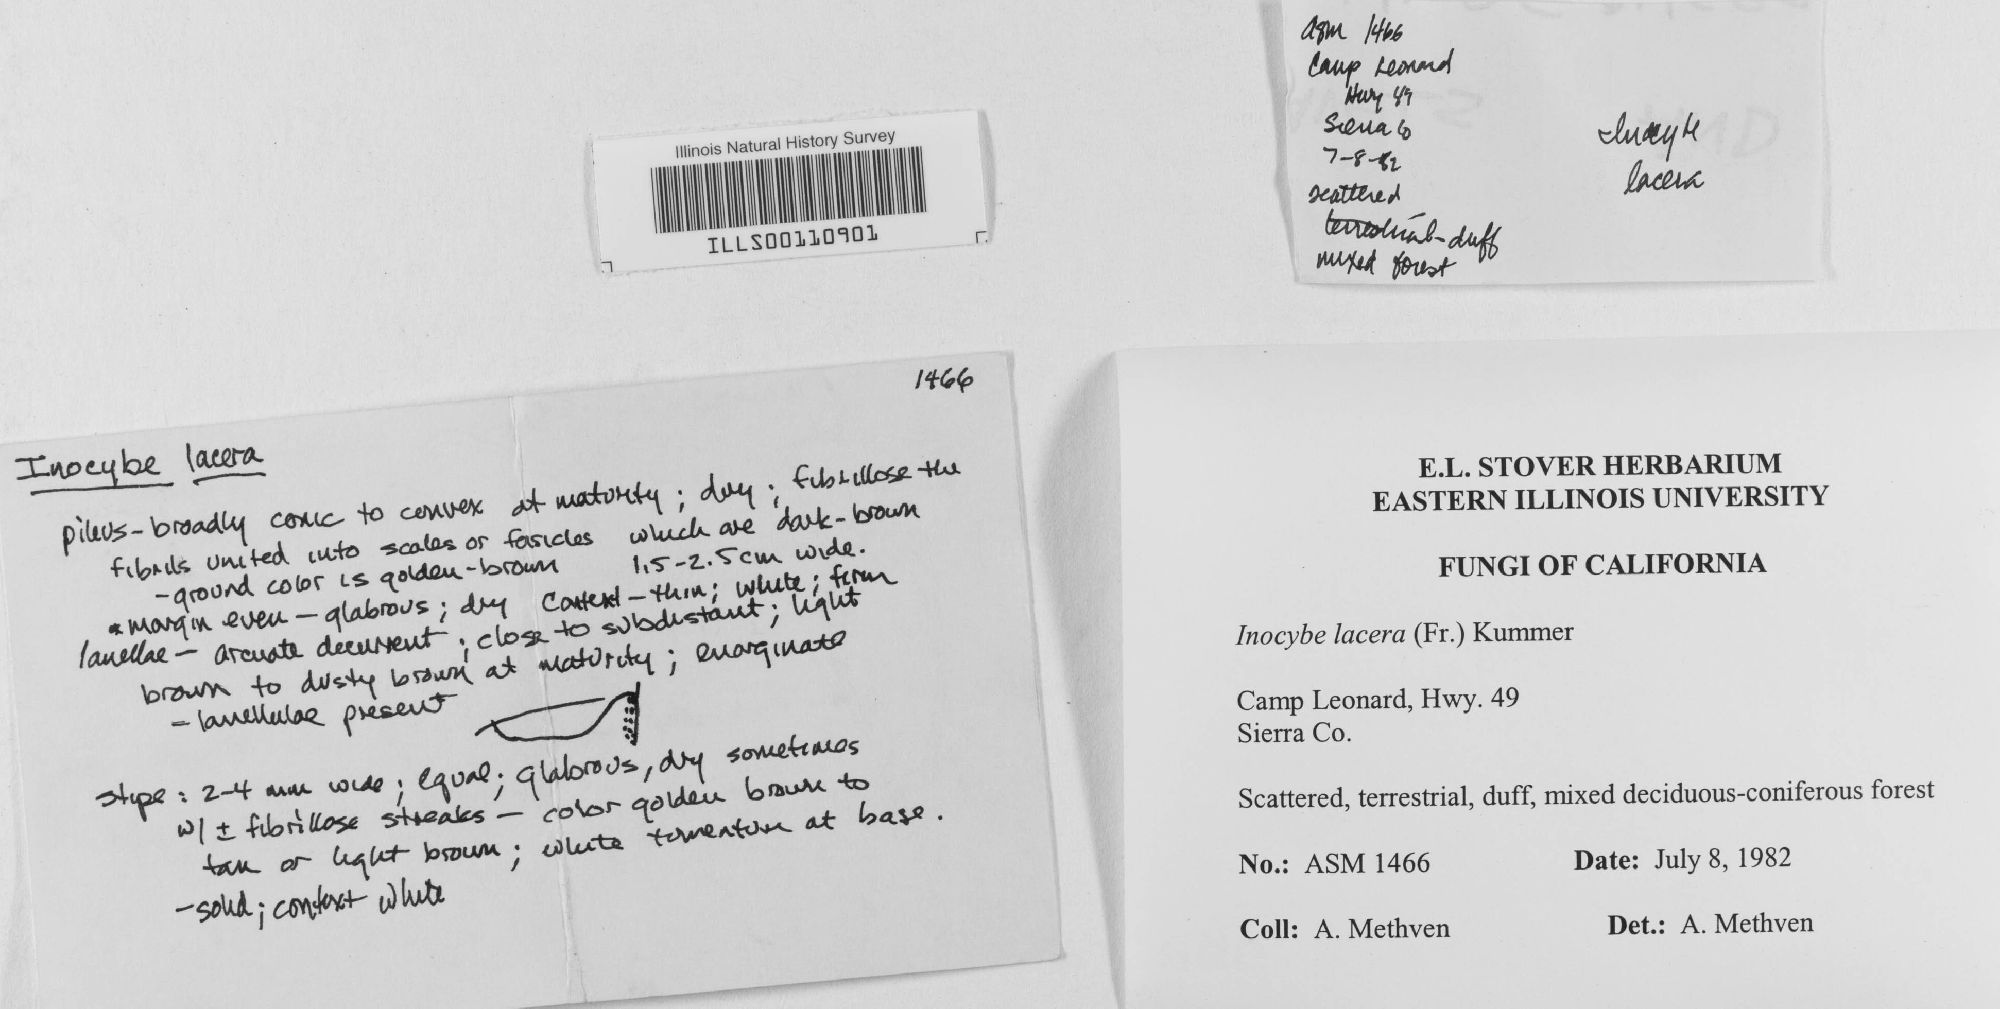 Illinois Natural History Survey
ILLS00110901
asm 1466
Camp Leonard
Hwy 49
Sierra Co
7-8-82
scattered
terrestrial-duff
mixed forest
Inocybe
lacera
1466
Inocybe lacera
pileus-broadly conic to convex at maturity; dry; fibrillose the
fibrils united into scales or fasicles which are dark-brown
-ground color is golden-brown 1.5-2.5cm wide.
*margin even-glabrous; dry Context-thin; white; firm
lamellae- arcuate decurrent; close to subdistant; light
brown to dusty brown at maturity; emarginate
-lamellulae present
stipe: 2-4 mm wide; equal; glabrous, dry sometimes
w/ ± fibrillose streaks - color golden brown to
tan or light brown; white tomentum at base.
-solid; context white
E.L. STOVER HERBARIUM
EASTERN ILLINOIS UNIVERSITY
FUNGI OF CALIFORNIA
Inocybe lacera (Fr.) Kummer
Camp Leonard, Hwy. 49
Sierra Co.
Scattered, terrestrial, duff, mixed deciduous-coniferous forest
No.: ASM 1466 Date: July 8, 1982
Coll: A. Methven Det.: A. Methven